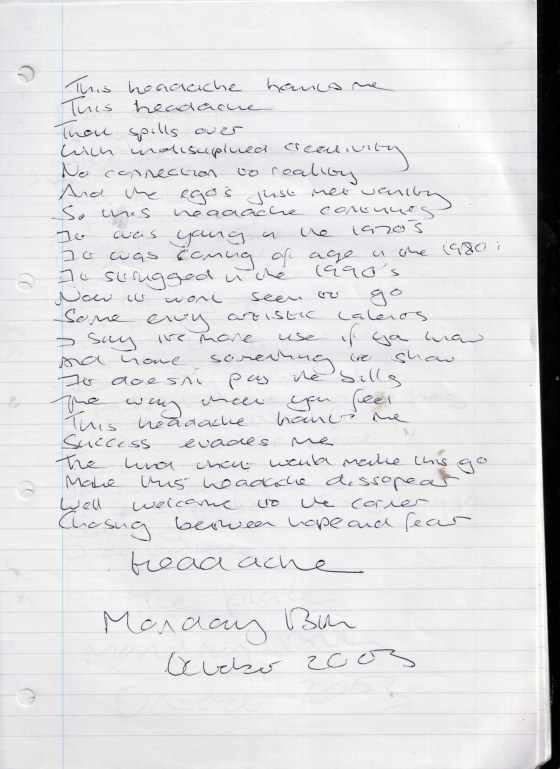 This headache haunts me
This headache
That spills over
With undisuplined creativity
No connection to reality
And the ego's just met vanity
So this headache continues
It was young in the 1970's
It was coming of age in the 1980's
It strugged in the 1990's
Now it wont seem to go
Some envy artistic talents
I say its more use if you know
And have something to show
It doesn't pay the bills
The way that you feel
This headache haunts me
Success evades me
The kind that would make this go
Make this headache dissapear
Well welcome to the career
Chasing between hope and fear
Headache
Monday 13th
October 2003